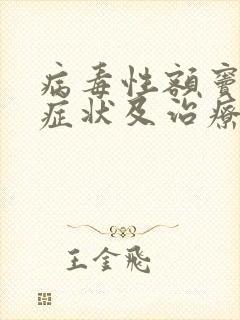 病毒性额窦
症状及治疗
王金飛